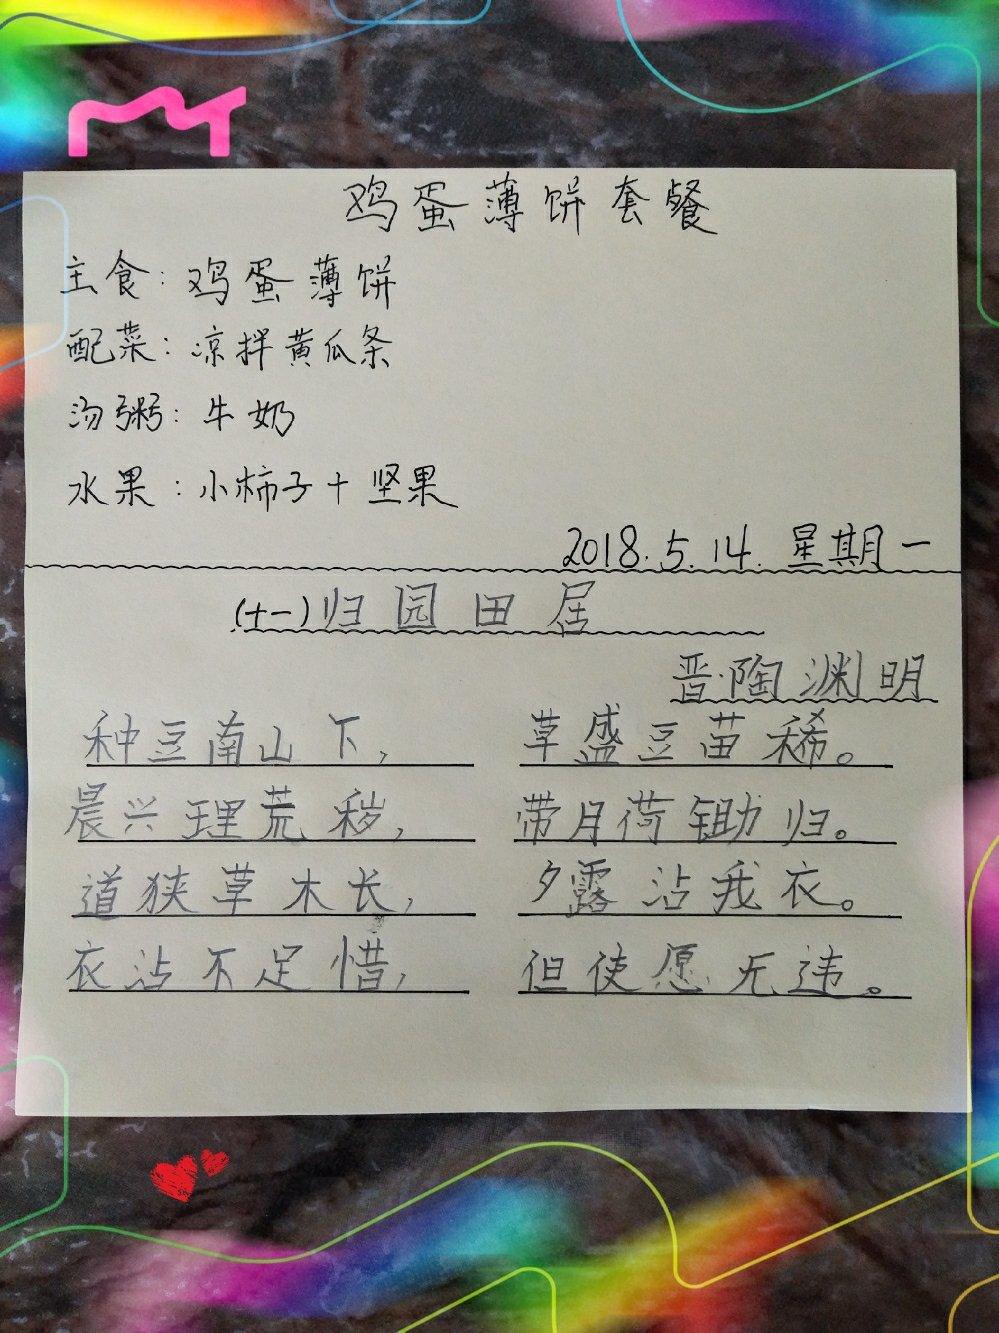 鸡蛋薄饼套餐
主食：鸡蛋薄饼
配菜：凉拌黄瓜条
汤粥：牛奶
水果：小柿子+坚果
2018.5.14.星期一
(十一)归园田居
晋·陶渊明
种豆南山下，草盛豆苗稀。
晨兴理荒秽，带月荷锄归。
道狭草木长，夕露沾我衣。
衣沾不足惜，但使愿无违。